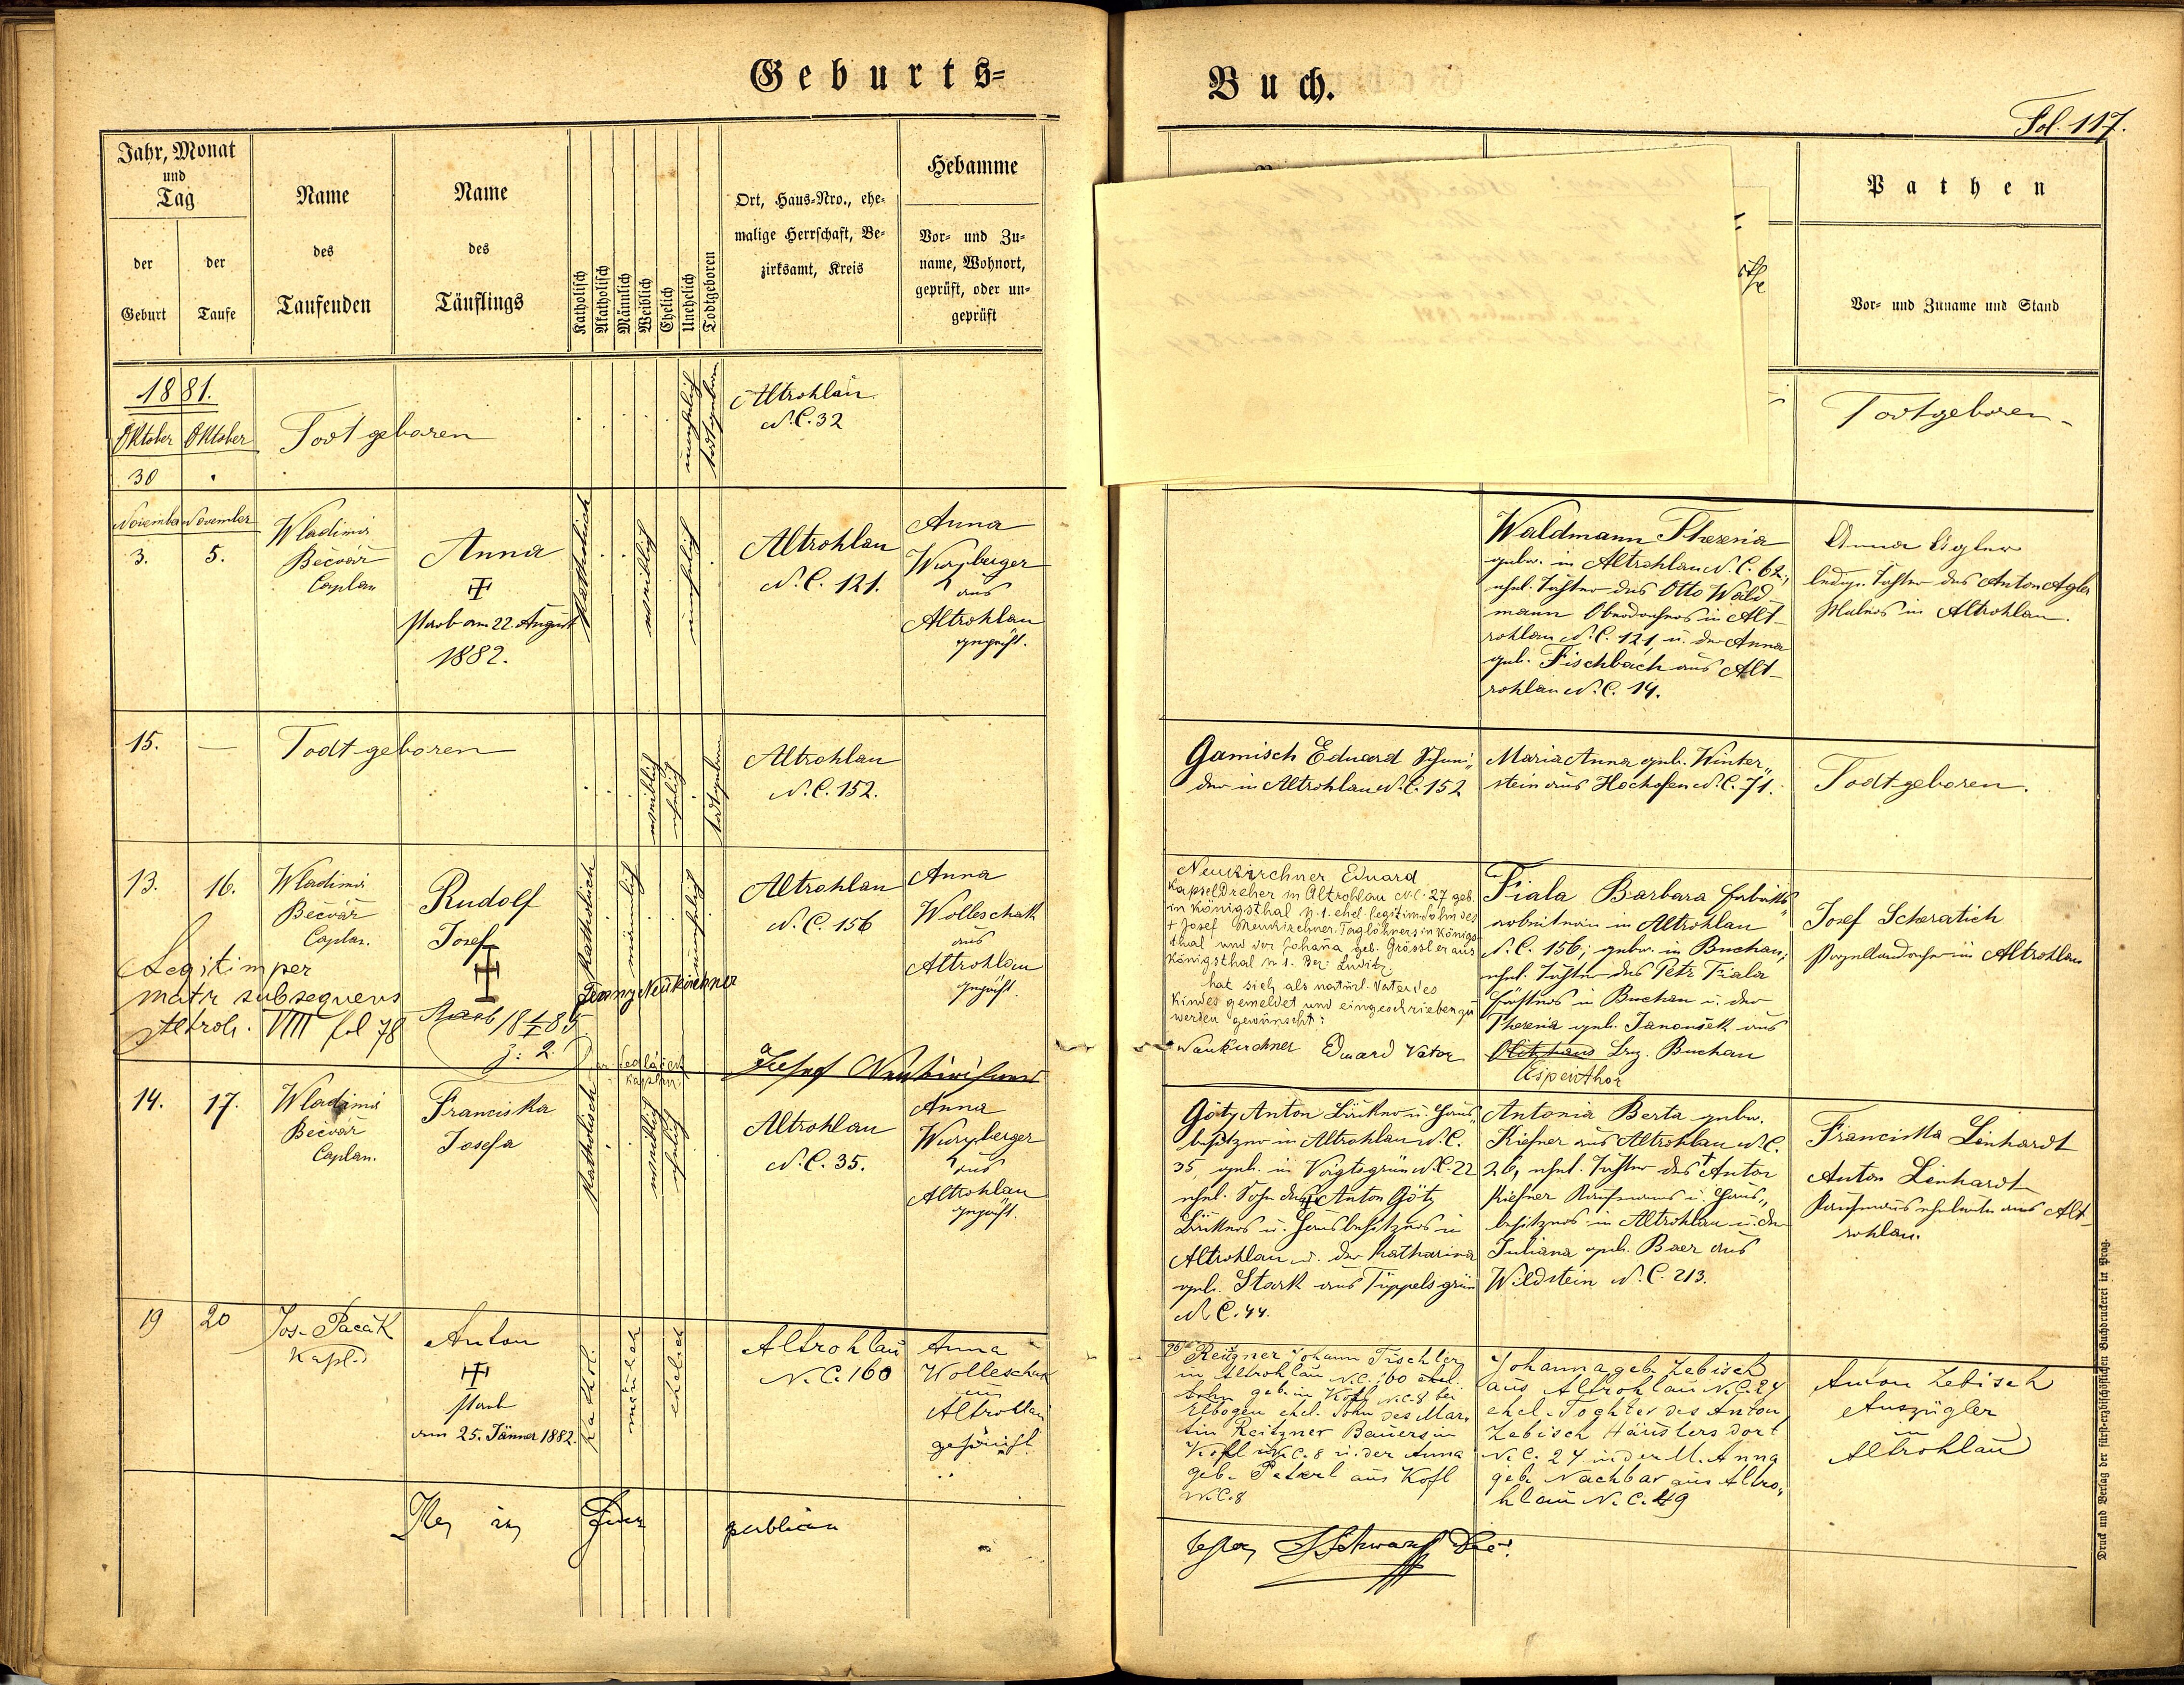 Geburts-
Buch.
Fol. 117.
Jahr, Monat
und
Tag
der
Geburt
der
Taufe
Name
des
Taufenden
Name
des
Täuflings
Katholisch
Akatholisch
Männlich
Weiblich
Ehelich
Unehelich
Todtgeboren
Ort, Haus-Nro., ehe-
malige Herrschaft, Be-
zirksamt, Kreis
Hebamme
Vor- und Zu-
name, Wohnort,
geprüft, oder un-
geprüft
Pathen
Vor- und Zuname und Stand
1881.
Oktober Oktober
30
Todtgeboren
unehelich
todtgeboren
Altrohlau
N.C. 32
Todtgeboren
November November
3. 5.
Wladimir
Bečvář
Caplan
Anna
starb am 22. August
1882.
Katholisch
weiblich
unehelich
Altrohlau
N.C. 121.
Anna
Wurzberger
aus
Altrohlau
geprüft.
Waldmann Theresia
gebor. in Altrohlau N.C. 62,
ehel. Tochter des Otto Wald
mann Oberdrehers in Alt-
rohlau N.C. 121 u. der Anna
geb. Fischbach aus Alt-
rohlau N.C. 14.
Anna Agler
ledige Tochter des Anton Agler
Malers in Altrohlau.
15. —
Todtgeboren
weiblich
ehelich
todtgeboren
Altrohlau
N.C. 152.
Gamisch Eduard Schnei-
der in Altrohlau N.C. 152
Maria Anna geb. Winter-
stein aus Hochofen N.C. 71.
Todtgeboren.
13. 16.
Wladimir
Bečvář
Caplan.
Rudolf
Josef
starb 18 1/I 85
z: 2.
Legitim per
matr subsequens
Altroh. VIII fol 78
Katholisch
männlich
unehelich
Altrohlau
N.C. 156
Anna
Wolleschak
aus
Altrohlau
geprüft.
Neukirchner
Neukirchner Eduard
Kapseldreher in Altrohlau N.C. 27 geb.
in Königsthal N. 1. ehel. legitim. Sohn des
+ Josef Neukirchner Taglöhners in Königs
thal und der Johana geb. Grössl er aus
Königsthal N 1. Bez: Luditz
hat sich als natürl. Vater des
Kindes gemeldet und eingeschrieben zu
werden gewünscht:
Neukirchner Eduard Vater
Fiala Barbara Fabriks-
arbeiterin in Altrohlau
N.C. 156; gebor. in Buchau,
ehel. Tochter des Petr Fiala
Försters in Buchau u. der
Theresia geb. Janoušek aus
Bez. Buchau
Espenthor
Josef Scheratich
Porzellandreher in Altrohlau
14. 17.
Wladimir
Bečvář
Caplan.
Franciska
Josefa
Katholisch
weiblich
ehelich
Altrohlau
N.C. 35.
Anna
Wurzberger
aus
Altrohlau
geprüft.
Götz Anton Bäcker u. Haus-
besitzer in Altrohlau N.C.
35, geb. in Voigtsgrün N.C. 22
ehel. Sohn des Anton Götz
Bäckers u. Hausbesitzers in
Altrohlau u. der Katharina
geb. Stark aus Tüppelsgrün
N.C. 44.
Antonia Berta gebor.
Kiesner aus Altrohlau N.C.
26, ehel. Tochter des + Anton
Kiesner Kaufmanns u. Haus-
besitzers in Altrohlau u. der
Juliana geb. Baer aus
Wildstein N.C. 213.
Franciska Linhardt
Anton Linhardt
Kaufmannseheleute aus Alt-
rohlau.
19 20
Jos. Pacák
Kapl.
Anton
starb
am 25. Jänner 1882.
Kathol.
männlich
ehelich
Altrohlau
N.C. 160
Anna
Wolleschak
aus
Altrohlau
geprüft
Johann Tischler
in Altrohlau N.C. 160 ehel.
Sohn geb. in Kofl N.C. 8 bei
Elbogen ehel. Sohn des Mar-
tin Reitzner Bauers in
Kofl N.C. 8 u. der Anna
geb. Peterl aus Kofl
N.C. 8
Johanna geb. Zebisch
aus Altrohlau N.C. 24
ehel. Tochter des Anton
Zebisch Häuslers dort
N.C. 24 u. der M. Anna
geb. Nachbar aus Altro-
hlau N.C. 49
Anton Zebisch
Auszügler
in
Altrohlau
publicam
Druck und Verlag der fürst-erzbischöflichen Buchdruckerei in Prag.